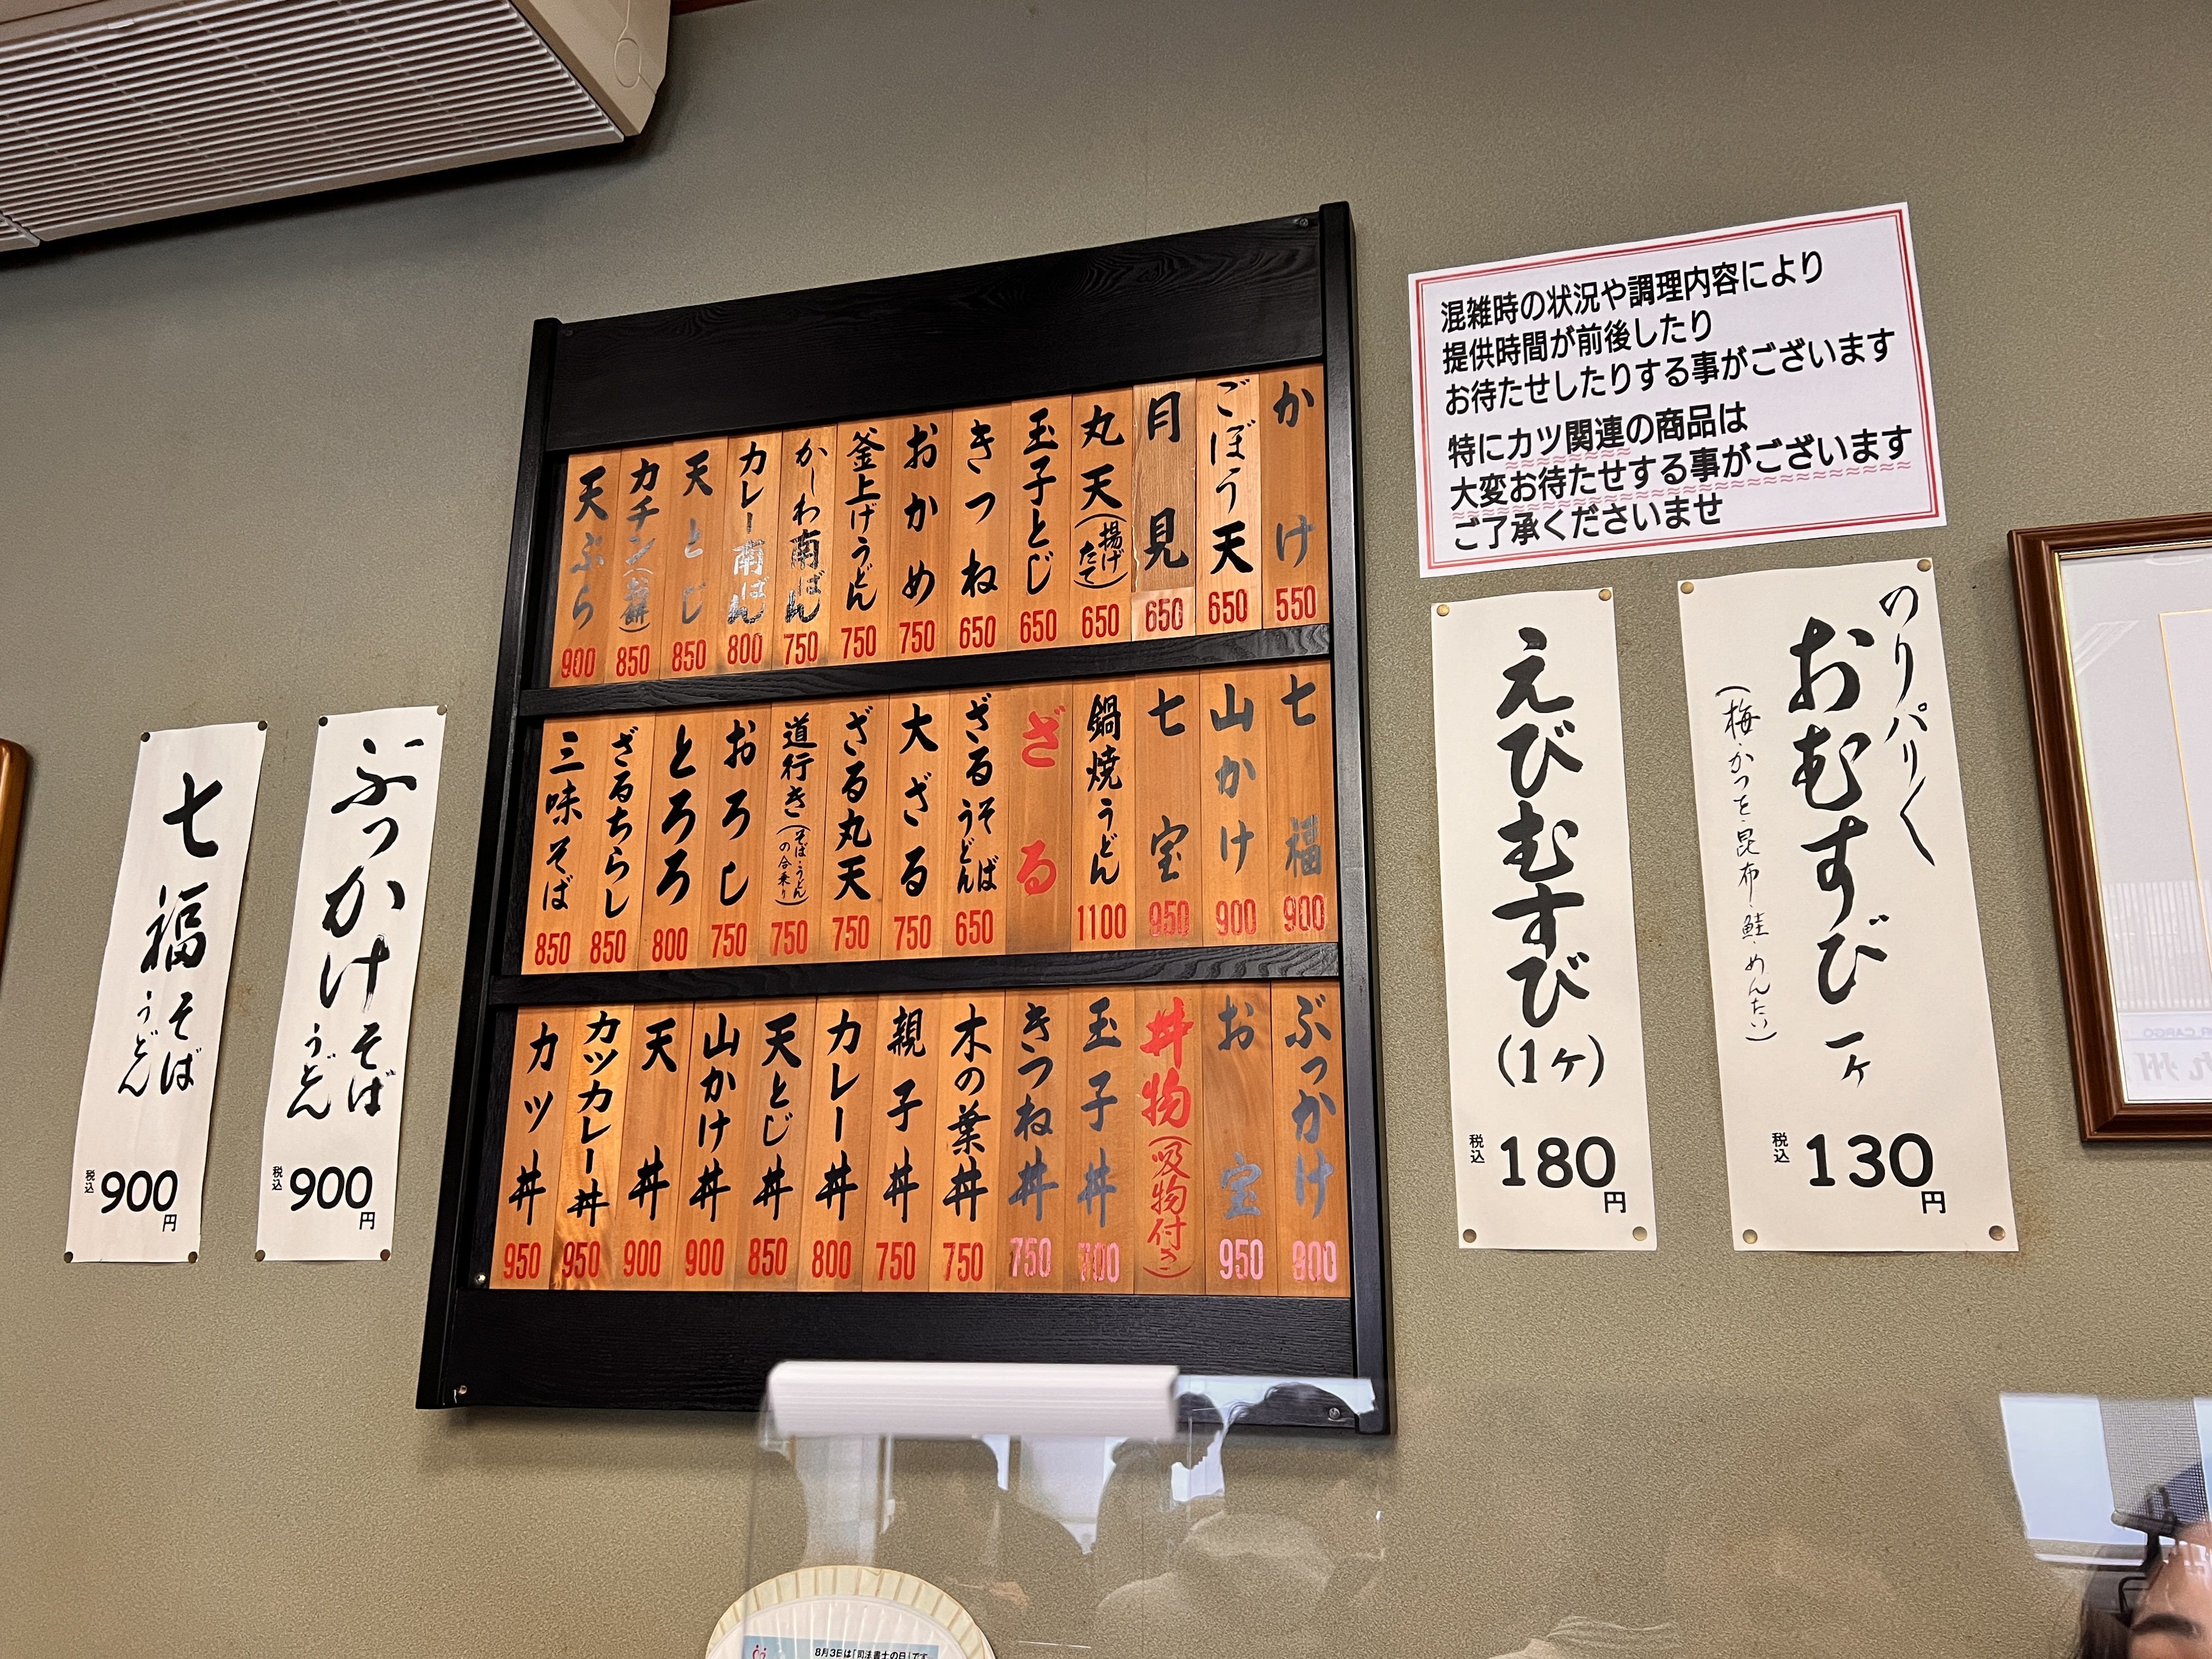 かけ 550
ごぼう天 650
月見 650
丸天(揚げたて) 650
玉子とじ 650
きつね 650
おかめ 750
釜上げうどん 750
かしわ南ばん 750
カレー南ばん 800
天とじ 850
カチン(お餅) 850
天ぷら 900
七福 900
山かけ 900
七宝 950
鍋焼うどん 1100
ざる
ざるそばうどん 650
大ざる 750
ざる丸天 750
道行き(そば・うどんの合乗り) 750
おろし 750
とろろ 800
ざるちらし 850
三味そば 850
ぶっかけ 900
お宝 950
丼物(吸物付き)
玉子丼 700
きつね丼 750
木の葉丼 750
親子丼 750
カレー丼 800
天とじ丼 850
山かけ丼 900
天丼 900
カツカレー丼 950
カツ丼 950
混雑時の状況や調理内容により
提供時間が前後したり
お待たせしたりする事がございます
特にカツ関連の商品は
大変お待たせする事がございます
ご了承くださいませ
のりパリ〱
おむすび 一ヶ
(梅・かつを・昆布・鮭・めんたい)
税込 130円
えびむすび(1ヶ)
税込 180円
ぶっかけ そば うどん
税込 900円
七福 そば うどん
税込 900円
8月3日は「司法書士の日」です